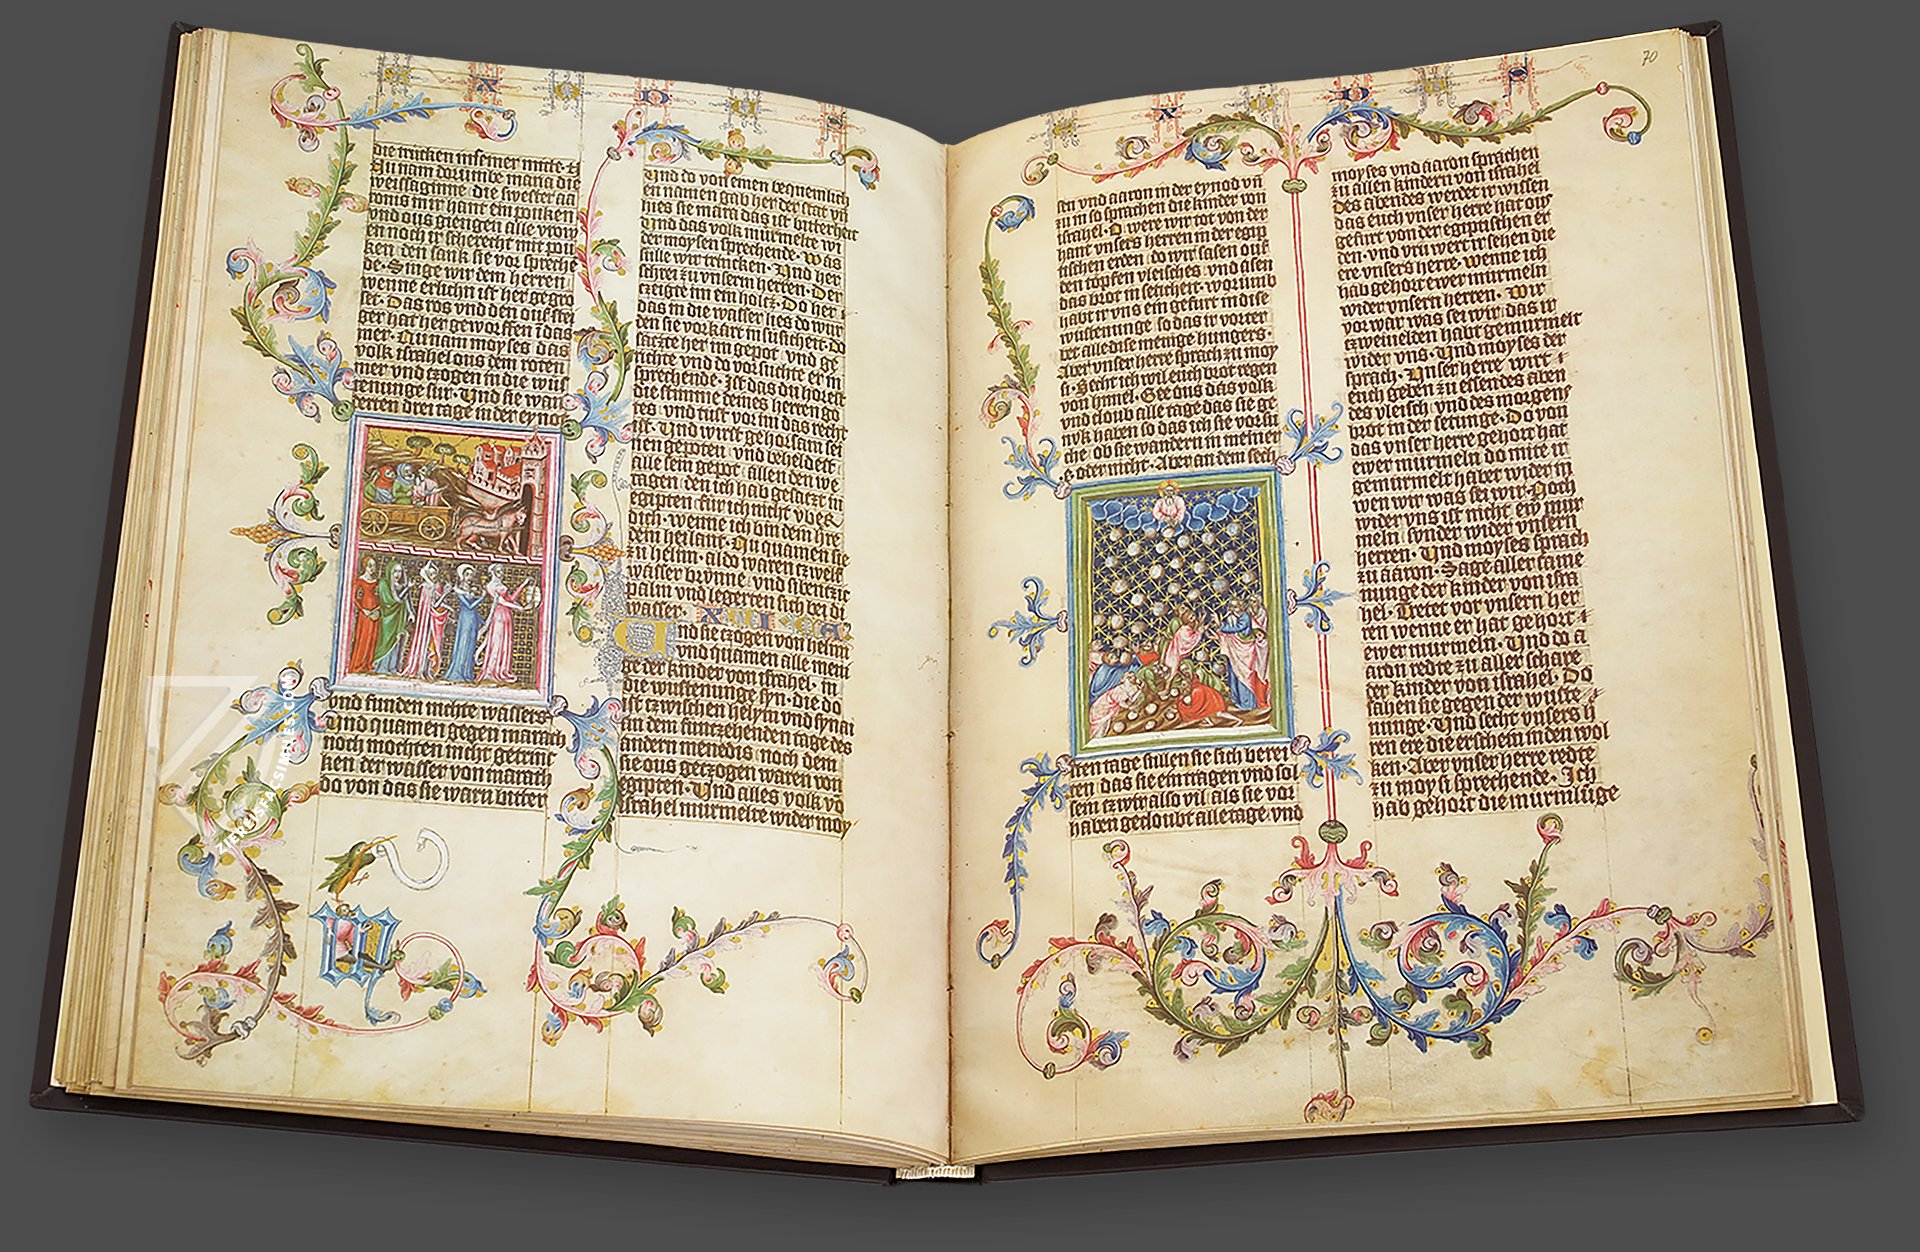 die trucken in seiner mitte ·
nam dorumbe maria die
weissaginne die swester aa
rons mir hant ein pauken
vnd aus giengen alle
noch ir scherecht mit pau
ken den sank sie vor spreche
de · Singe wir dem herren
wenne erlichn ist her gegro
set · Das ros vnd den auf stei
ger hat her geworffen i das
mer · nam moyses das
volk israhel aus dem roten
mer vnd czogen in die wus
tenunge sur · Vnd sie wan
drei tage in der eyno
vnd funden nichte wassers ·
Vnd quamen gegen marach
noch mochten nicht getrin
ken der wasser von marath
do von das sie warn bitter
Vnd do von einen bequemlich
en nam gab her der stat vn
hies sie mara das ist bitterheit
Vnd das volk murmelte wi
der moysen sprechende · Was
sulle wir trinken · Vnd her
schrei zu vnserm herren · Der
czeigte im ein holtz · Do her
das in die wasser lies do wur
den sie vorkart in sussicheit · Do
saczte her im gepot vnd ge
richte vnd do vorsuchte er in
sprechende · Ist das du horest
die stimme deines herren go
tes · vnd tust vor im das recht
ist · Vnd wirst gehorsam sei
nen gepoten · vnd beheldest
alle sein gepot · allen den we
tagen den ich hab gesaczt in
egipten fur ich nicht
dich · wenne ich bin dein hre
dein heilant · quamen sie
zu helim · aldo waren czwelf
wasser brunne vnd sibenczic
palm vnd legerten sich bei di
wasser ·
Vnd sie czogen von helim
vnd quamen alle meni
ge der kinder von israhel · in
die wustenunge syn · Die do
ist czwischen helym vnd synai
in dem funfczehenden tage des
andern menedis · noch dem
sie aus geczogen waren von
egipten · Vnd alles volk
israhel murmelte wider moy
70
sen vnd aaron in der eynod vn
zu in so sprachen die kinder von
israhel · O were wir tot von der
hant vnsers herren in der egip
tischen erden · do wir sasen auf
den topfen vleisches · vnd asen
das brot in setichert · worumb
habt ir vns ein gefurt in dise
wustenunge · so das ir vorter
bet alle dise menige hungers ·
Aber vnser herre sprach zu moy
si · Secht ich wil euch brot regen
von himel · Gee aus das volk
vnd cloub alle tage das sie ge
nuk haben so das ich sie vorsu
che · ob sie wandern in meiner
e oder nicht · Aber an dem sech
sten tage sullen sie sich berei
ten · das sie ein tragen vnd sol
sein czwir also vil als sie vor
haben gecloubt alle tage · vnd
moyses vnd aaron sprachen
zu allen kindern von israhel
Des abendes werdet ir wissen
das euch vnser herre hat aus
gefurt von der egiptischen er
den · vnd vru wert ir sehen die
ere vnsers herre · wenne ich
hab gehort ewer murmeln
wider vnsern herren · Wir
vor war was sei wir · das ir
czweinelden habt gemurmelt
wider vns · Vnd moyses der
sprach · Vnser herre wirt
euch geben zu essen des aben
des vleisch · vnd des morgens
brot in der setunge · Do von
das vnser herre gehort hat
ewer murmeln do mite ir
gemurmelt haber wider in
wen wir was sei wir · Noch
wider vns ist nicht ewr mur
meln · sunder wider vnsern
herren · Vnd moyses sprach
zu aaron · Sage aller same
nunge der kinder von isra
hel · Tretet vor vnsern her
ren wenne er hat gehort
ewer murmeln · Vnd do a
aron redte zu aller schare
der kinder von israhel · Do
sahen sie gegen der wuste
nunge · Vnd secht vnsers h
ren ere die erschein in den wol
ken · Aber vnser herre redte
zu moysi sprechende · Ich
hab gehort die murmlunge
ZIEREIS FACSIMILES.COM